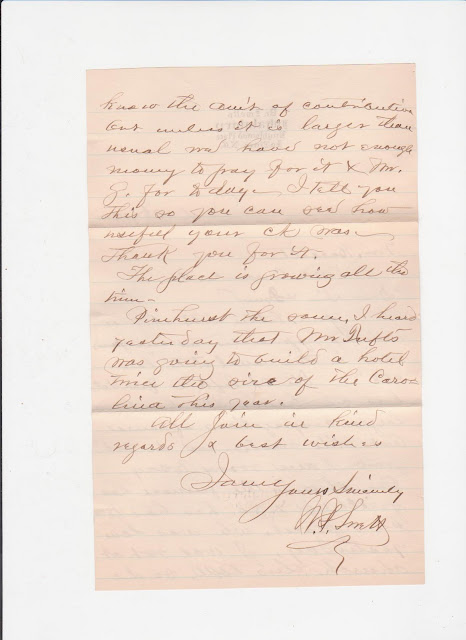 know the am't of contribution
but unless it is larger than
usual we have not enough
money to pay for it & Mr.
G. for to day - I tell you
this so you can see how
useful your ck was -
Thank you for it.
The place is growing all the
time -
Pinehurst the same, I heard
yesterday that Mr Tufts
was going to build a hotel
twice the size of the Caro-
lina this year.
All join in kind
regards & best wishes
I am
yours Sincerely